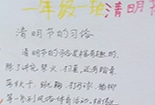 一年级一班 清明节
清明节的习俗
清明节的习俗是丰富有趣的,
除了讲究禁火、扫墓,还有踏青
荡秋千、蹴鞠、打马球、插柳
等一系列风俗体育活动。相传